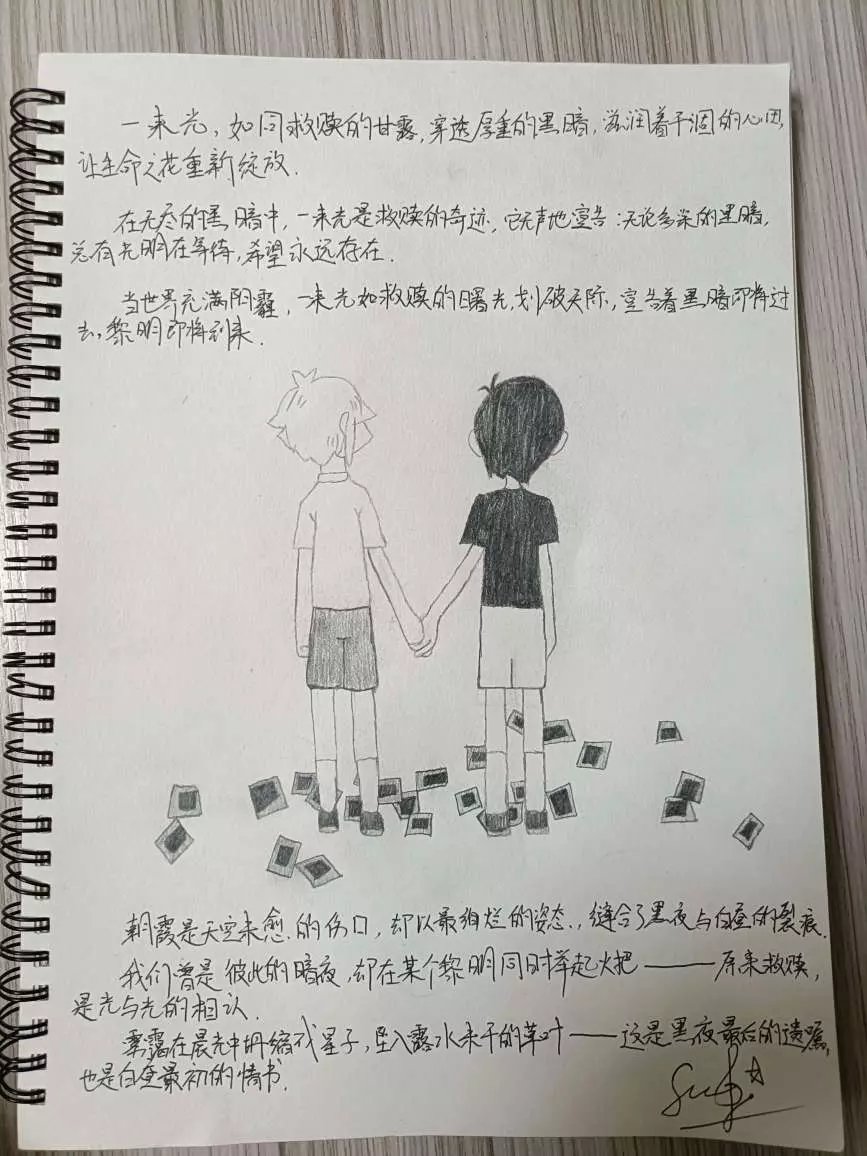 一束光，如同救赎的甘露，穿透厚重的黑暗，滋润着干涸的心田，
让生命之花重新绽放．
在无尽的黑暗中，一束光是救赎的奇迹，它无声地宣告：无论多深的黑暗，
总有光明在等待，希望永远存在．
当世界充满阴霾，一束光如救赎的曙光，划破天际，宣告着黑暗即将过
去，黎明即将到来．
朝霞是天空未愈的伤口，却以最绚烂的姿态，缝合了黑夜与白昼的裂痕．
我们曾是彼此的暗夜，却在某个黎明同时举起火把———原来救赎，
是光与光的相认．
雾霭在晨光中坍缩成星子，坠入露水未干的草叶———这是黑夜最后的遗嘱，
也是白昼最初的情书．